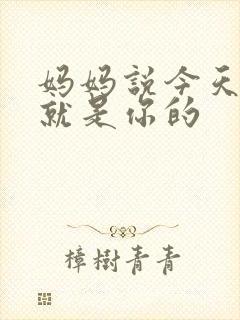 妈妈説今天
就是你的
樟樹青青